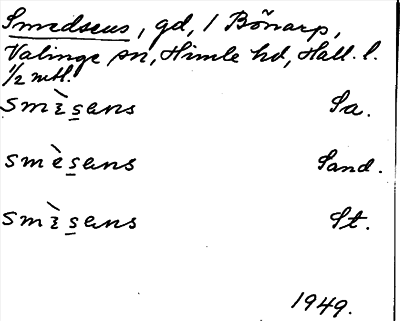 Smedsens, gd, 1 Bönarp,
Valinge sn, Himle hd, Hall. l.
1/2 mtl.
smɪ̀s̲ɐns Sa.
smès̲ɐns Sand.
smɪ̀s̲ɐns St.
1949.